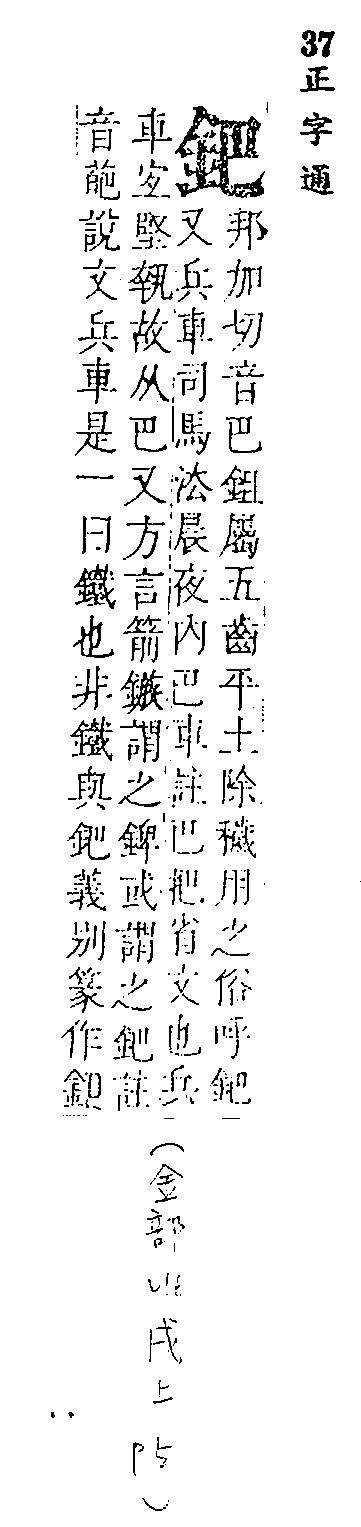 37 正字通
鈀
邦加切音巴鉏屬五齒平土除穢用之俗呼鈀
又兵車司馬法晨夜內巴車註巴把省文也兵
車宐堅執故从巴又方言箭鏃謂之錍或謂之鈀註
音葩說文兵車是一曰鐵也非鐵與鈀義別篆作
(金部 戌上